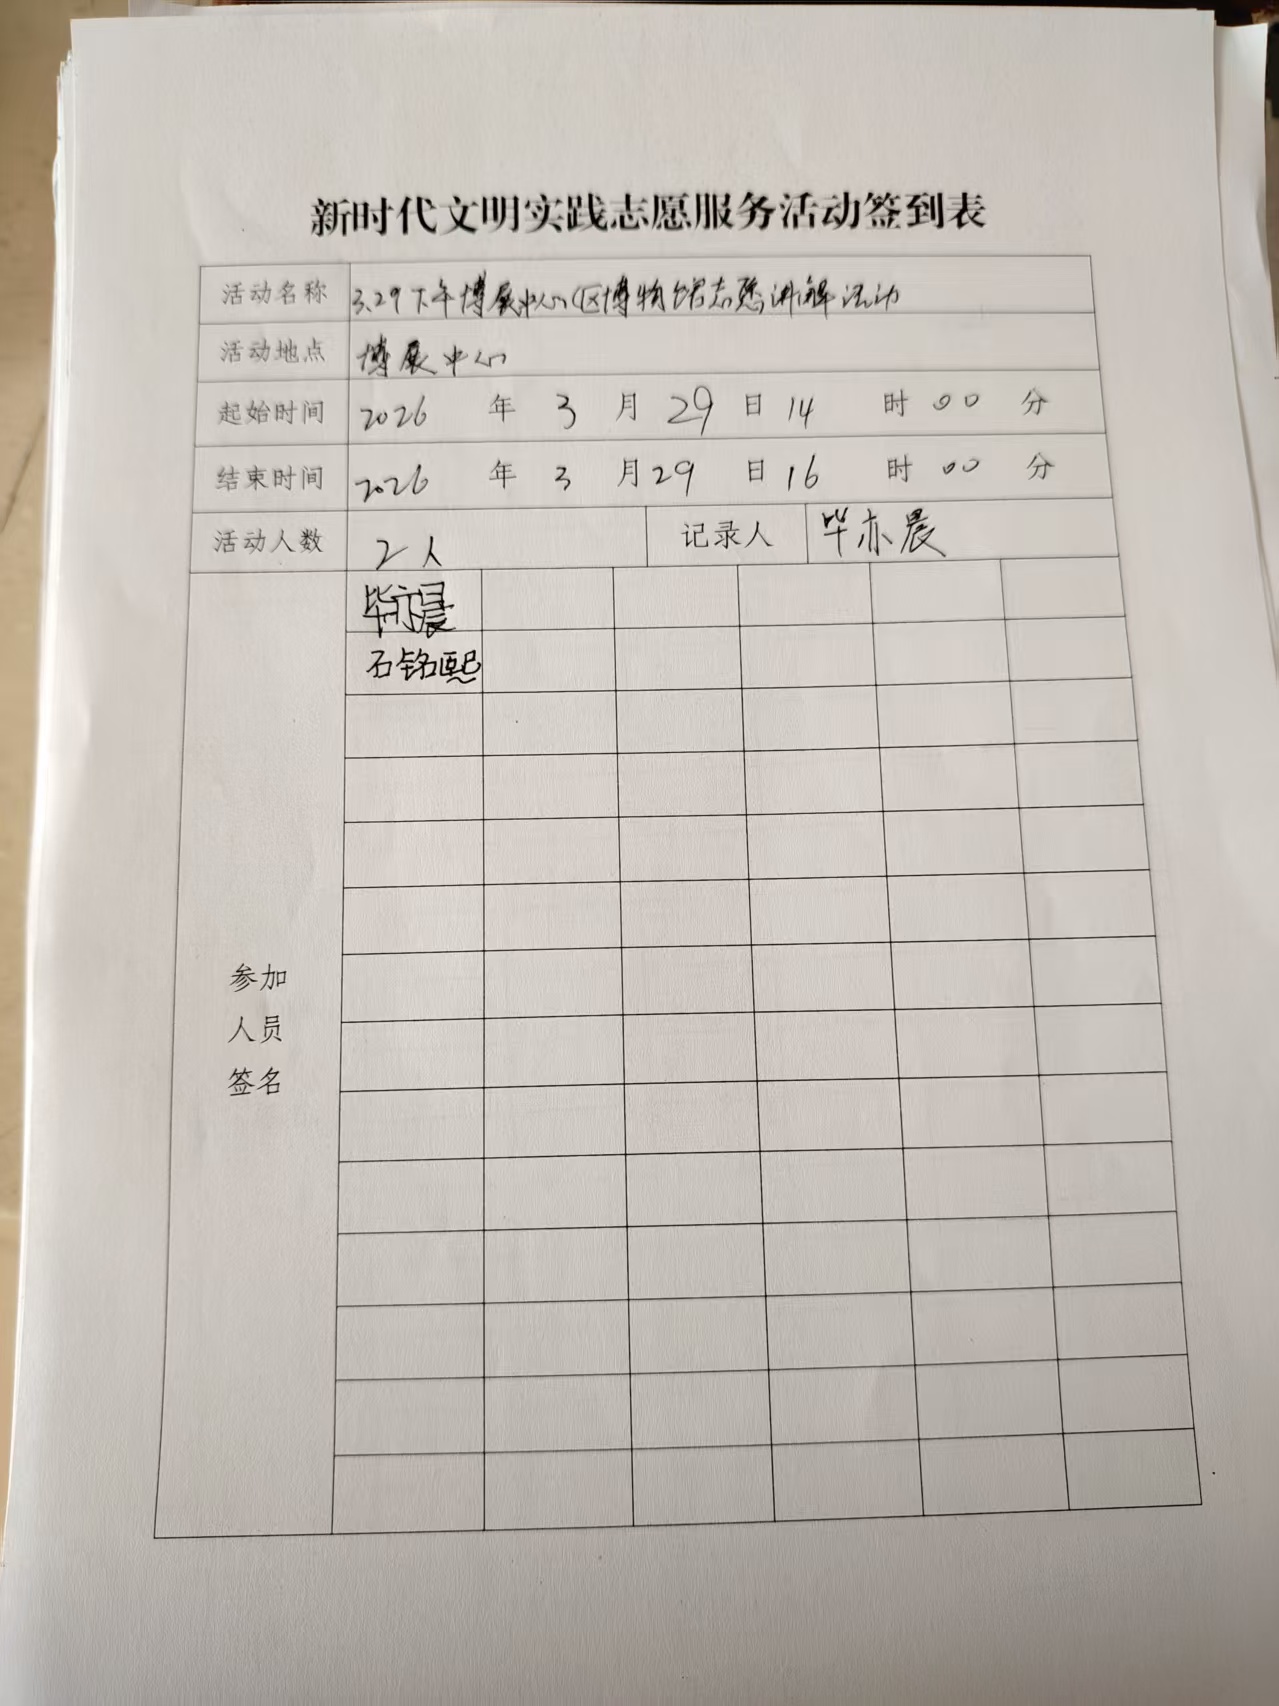 新时代文明实践志愿服务活动签到表
活动名称 3.29下午博展中心(区博物馆志愿讲解活动
活动地点 博展中心
起始时间 2026 年 3 月 29 日 14 时 00 分
结束时间 2026 年 3 月 29 日 16 时 00 分
活动人数 2人 记录人 毕亦晨
毕亦晨
石铭熙
参加
人员
签名